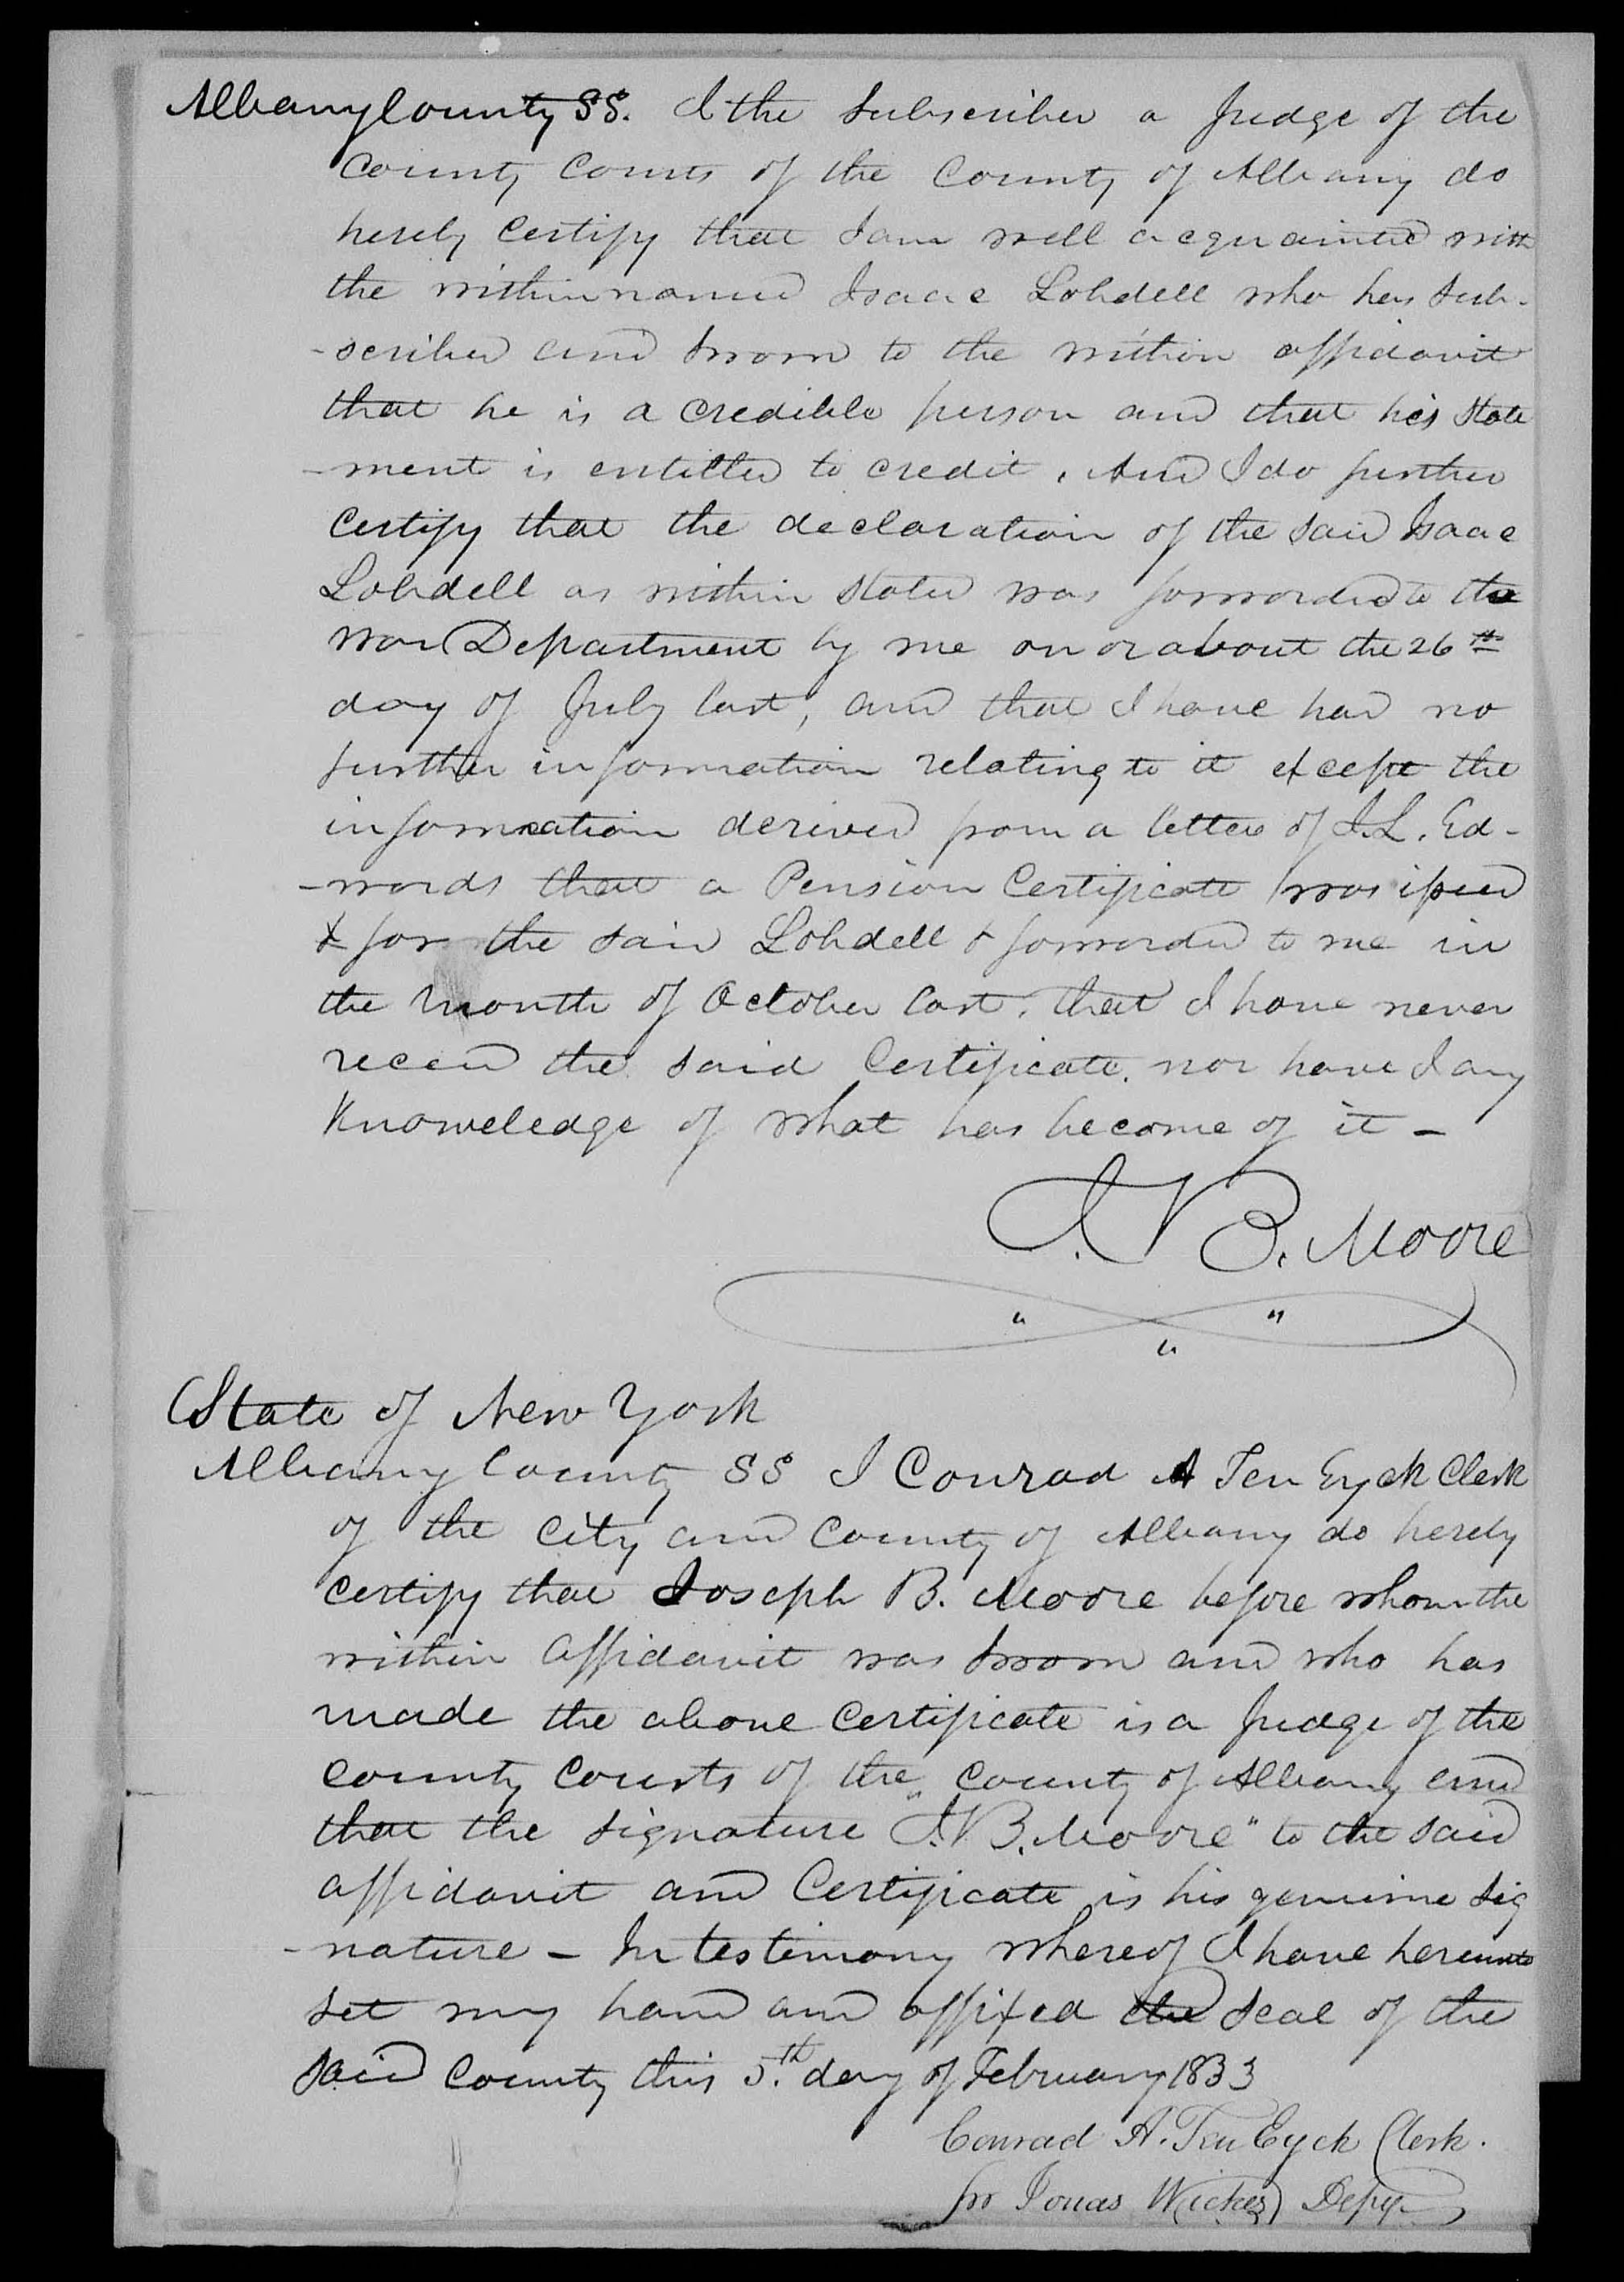 Albany County SS. I the Subscriber a Judge of the
County Courts of the County of Albany do
hereby Certify that I am well acquainted with
the within named Isaac Lobdell who has Sub-
-scribed and Sworn to the within affidavit
that he is a credible person and that his State
-ment is entitled to credit, And I do further
Certify that the declaration of the said Isaac
Lobdell as within stated was forwarded to the
War Department by me on or about the 26th
day of July last, and that I have had no
further information relating to it except the
information derived from a letter of J. L. Ed-
-wards that a Pension Certificate was issued
& for the said Lobdell & forwarded to me in
the Month of October last, that I have never
recevd the said Certificate, nor have I any
Knoweledge of what has become of it -
J. B. Moore
State of New York
Albany County SS I Conrad A Ten Eyck Clerk
of the City and County of Albany do hereby
certify that Joseph B. Moore before whom the
within Affidavit was Sworn and who has
made the above Certificate is a Judge of the
County Courts of the County of Albany and
that the signature "J. B. Moore" to the said
affidavit and Certificate is his genuine Sig
-nature - In testimony whereof I have hereunto
Set my hand and affixed the Seal of the
said County this 5.th day of February 1833
Conrad A. Ten Eyck Clerk.
pr Jonas Wickes Depy